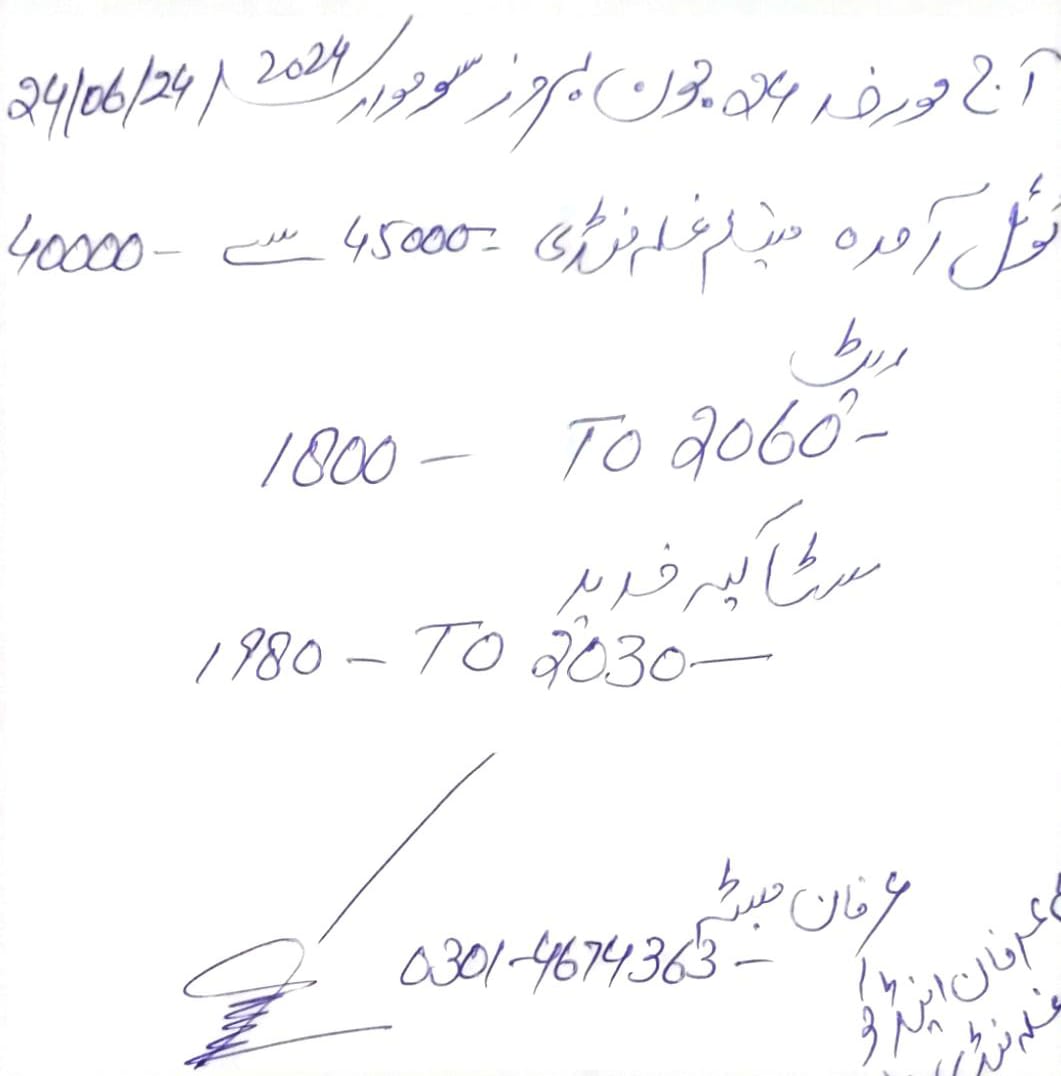 آج مورخہ 24 جون بروز سوموار 2024 / 24/06/24
ٹوٹل آمدہ غلہ منڈی 45000 سے 40000
ریٹ
1800 - TO 2060 -
سٹاکیہ خرید
1980 - TO 2030 -
عرفان
0301-4674363 -
عرفان اینڈ
غلہ منڈی